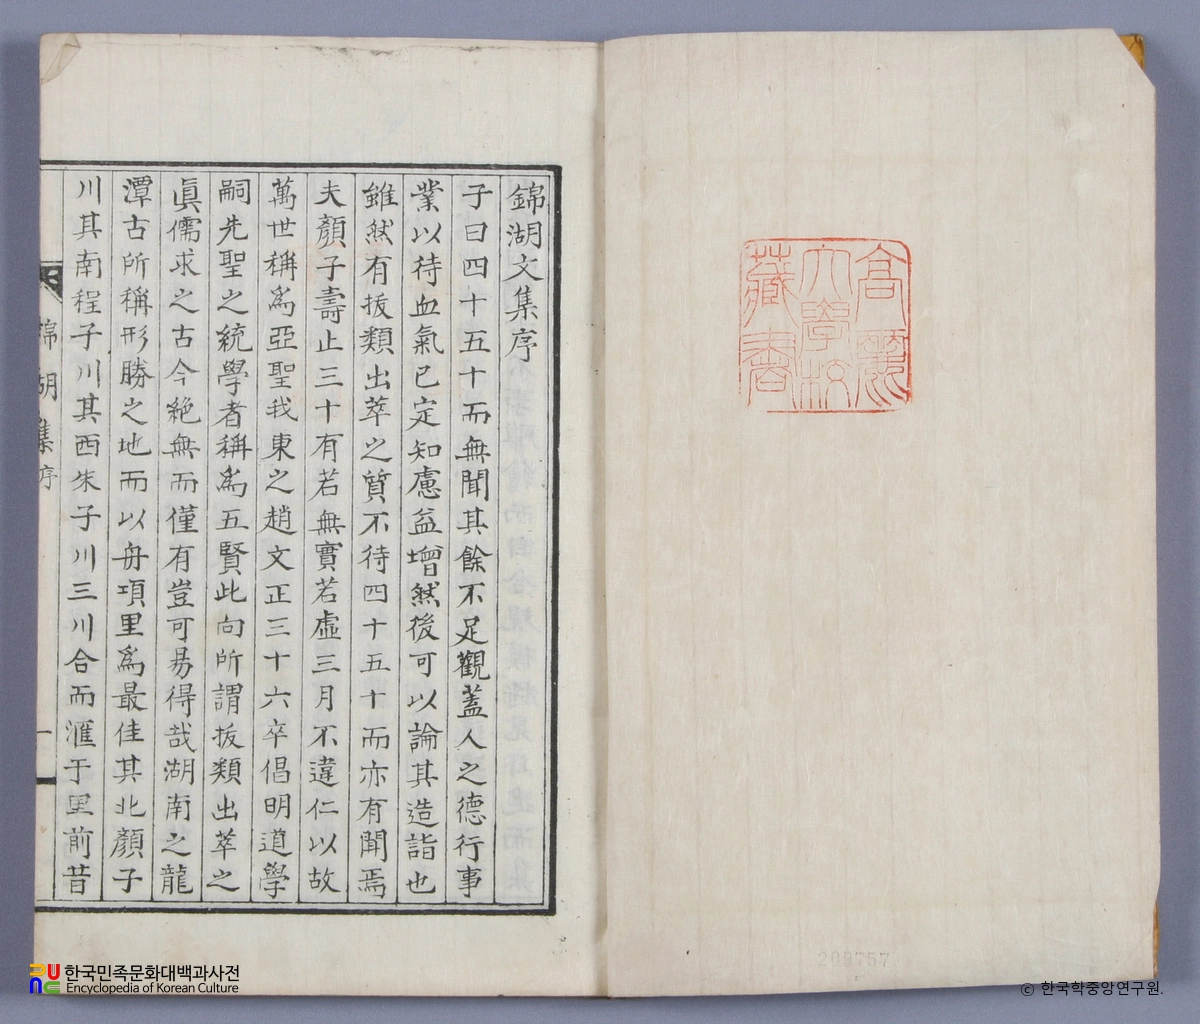 錦湖文集序
子曰四十五十而無聞其餘不足觀蓋人之德行事
業以待血氣已定知慮益增然後可以論其造詣也
雖然有拔類出萃之質不待四十五十而亦有聞焉
夫顏子壽止三十有若無實若虛三月不違仁以故
萬世稱爲亞聖我東之趙文正三十六卒倡明道學
嗣先聖之統學者稱爲五賢此向所謂拔類出萃之
眞儒求之古今絶無而僅有豈可易得哉湖南之龍
潭古所稱形勝之地而以舟項里爲最佳其北顏子
川其南程子川其西朱子川三川合而滙于里前昔
錦湖集序
一
高麗
大學校
藏書
208757
한국민족문화대백과사전
Encyclopedia of Korean Culture
© 한국학중앙연구원.